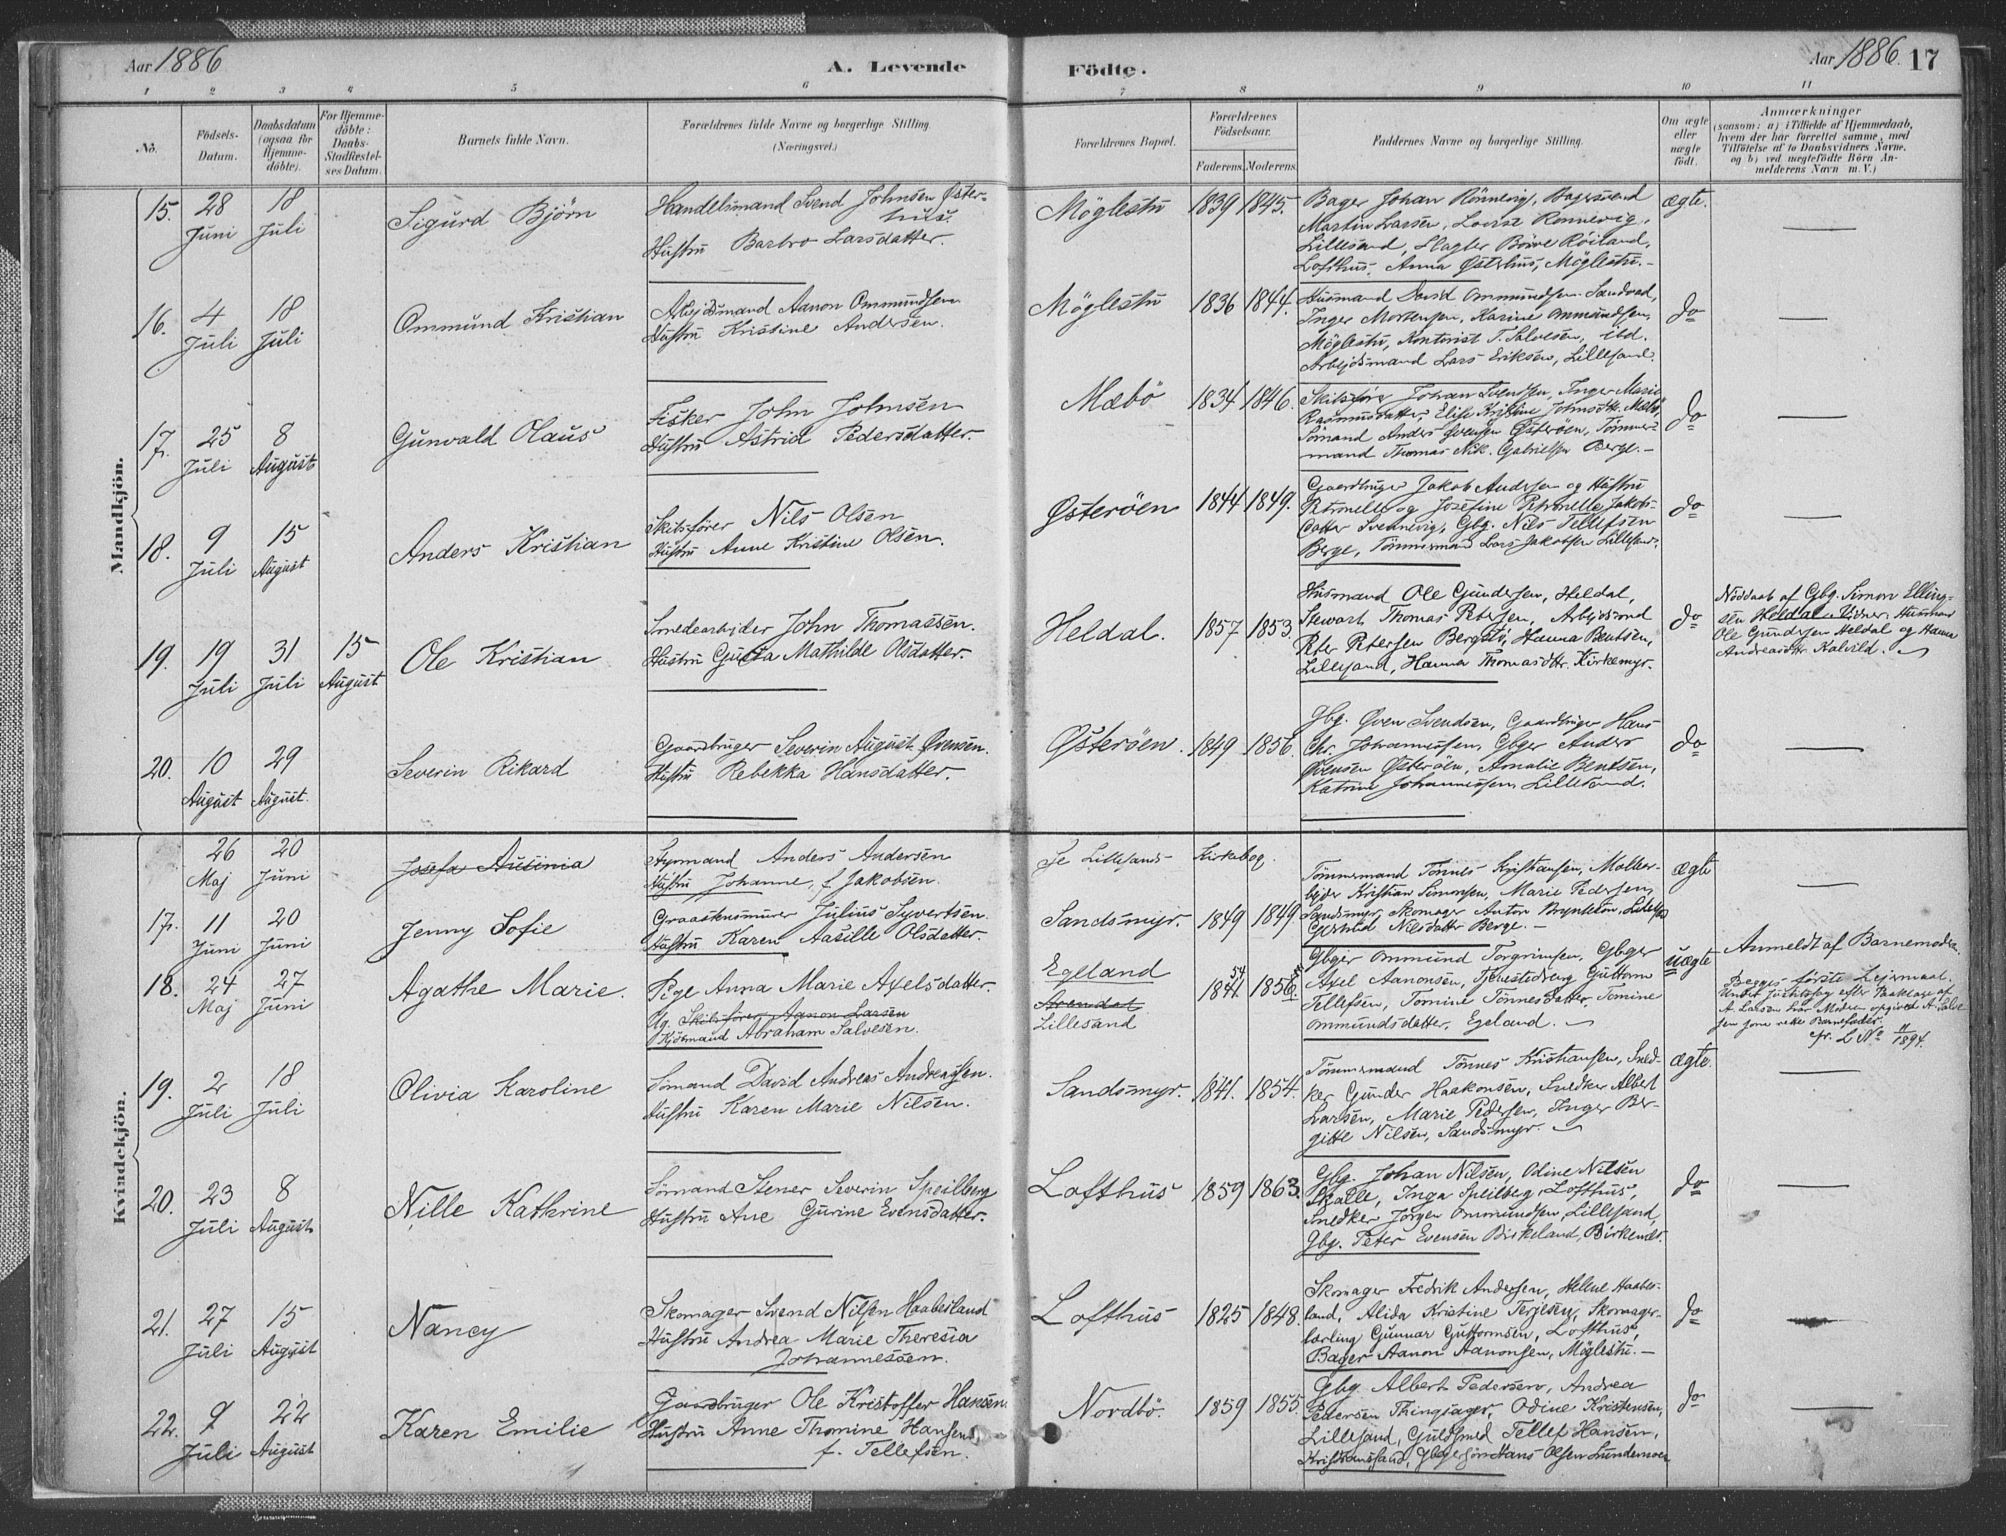 Aar 1886
A. Levende
Födte.
Aar 1886. 17
1 2 3 4 5 6 7 8 9 10 11
No.
Födsels-
Datum.
Daabsdatum
(ogsaa for
Hjemme-
döbte).
For Hjemme-
döbte:
Daabs-
Stadfæstel-
ses Datum.
Barnets fulde Navn.
Forældrenes fulde Navne og borgerlige Stilling.
(Næringsvei.)
Forældrenes Bopæl.
Forældrenes
Födselsaar.
Faderens. Moderens.
Faddernes Navne og borgerlige Stilling.
Om ægte
eller
uægte
födt.
Anmærkninger
(saasom: a) i Tilfælde af Hjemmedaab,
hvem der har forrettet samme, med
Tilföielse af to Daabsvidners Navne,
og b) ved uægtefödte Börn An-
melderens Navn m. V.)
Mandkjön.
15. 28 Juni 18 Juli Sigurd Björn
Handelsmand Svend Johnsen Øster-
hus
Hustru Barbro Larsdatter.
Möglestu 1839 1845.
Bager Johan Rönnevig, Bagersvend
Martin Larsen, Lovise Rönnevig,
Lillesand, Slagter Börre Röiland,
Lofthus, Anna Østerhus, Möglestu.
ægte.
16. 4 Juli 18 Juli Ommund Kristian
Arbeidsmand Aanon Ommundsen
Hustru Kristine Andersen.
Möglestu 1836 1844.
Husmand David Ommundsen Sandvad,
Inger Mortensen, Karine Ommundsen,
Möglestu, Kontorist T. Salvesen, ibd.
Arbejdsmand Lars Eriksen, Lillesand.
do
17. 25 Juli 8 August Gunvald Olaus
Fisker John Johnsen
Hustru Astrid Pedersdatter.
Mæbö 1834 1846.
Skibsförer Johan Svendsen, Inger Marie
Rasmusdatter, Elise Kristine Johnsdtr. Mæbö,
Sömand Anders Svensen Österöen, Tömmer-
mand Thomas Nik. Gabrielsen Berge.
do
18. 9 Juli 15 August Anders Kristian
Skibsförer Nils Olsen
Hustru Anne Kristine Olsen.
Østeröen 1844 1849.
Gaardbruger Jakob Andersen og Hustru
Petronelle og Josefine Petronelle Jakobs-
datter Svennevig, Gbg. Nils Tellefsen
Berge, Tömmermand Lars Jakobsen Lillesand.
do
19. 19 Juli 31 Juli 15 August Ole Kristian
Smedearbejder John Thomassen.
Hustru Gusta Mathilde Olsdatter.
Heldal. 1857 1853.
Husmand Ole Gundersen, Heldal,
Stewart Thomas Petersen, Arbejdsmand
Peter Petersen Bergstö, Hanna Bentsen,
Lillesand, Hanna Thomasdtr. Kirkemyr.
do
Nöddaab af Gbg. Simon Elling-
sen Heldal. Vidner: Husmand
Ole Gundersen Heldal og Hanna
Andreasdtr. Kalvild.
20. 10 August 29 August. Severin Rikard
Gaardbruger Severin August Øvensen.
Hustru Rebekka Hansdatter.
Østeröen. 1849 1856.
Gbg. Øven Svendsen, Gaardbruger Hans
Chr. Johannessen, Gbger Anders
Øvensen Østeröen, Amalie Bentsen,
Katrine Johannessen Lillesand.
do
Kvindekjön.
26 Maj 20 Juni Josefa Autinia
Styrmand Anders Andersen
Hustru Johanne, f. Jakobsen.
Se Lillesands Kirkebog.
17. 11 Juni 20 Juni Jenny Sofie
Graastensmurer Julius Syvertsen.
Hustru Karen Aasille Olsdatter.
Sandsmyr. 1849 1849
Tömmermand Tönnes Kristiansen, Malker-
Kristian Simonsen, Marie Pedersen
Sandsmyr, Skomager Anton Bryntesön, Lillesand
Gjertrud Nilsdatter Berge.
ægte
18. 24 Maj 27 Juni Agathe Marie.
Pige Anna Marie Axelsdatter.
Ug. Skibsförer Aanon Larsen
Sjömand Abraham Salvesen.
Egeland
Arendal
Lillesand
1841 54 1856
Gbger Ommund Torgrimsen, Gbger
Axel Aanonsen, Tjenestedreng Guttorm
Tellefsen, Tomine Tönnesdatter, Tomine
Ommundsdatter, Egeland.
uægte
Anmeldt af Barnemoder.
Begges förste Lejermaal.
Under efter Paaklage af
A. Larsen har Moderen opgivet A. Salve-
sen som rette Barnefader.
cfr. L No 11/1894.
19. 2 Juli 18 Juli Olivia Karoline
Sömand David Andreas Andreassen.
Hustru Karen Marie Nilsen.
Sandsmyr. 1841. 1854.
Tömmermand Tönnes Kristiansen, Sned-
ker Gunder Haakonsen, Snedker Albert
Larsen, Marie Pedersen, Inger Ber-
gitte Nilsen, Sandsmyr.
ægte.
20. 23 Juli 8 August Nille Kathrine
Sömand Stener Severin Speilberg
Hustru Ane Gurine Evensdatter.
Lofthus 1859 1863.
Gbg. Johan Nilsen, Odine Nilsen
Skalle, Inga Speilberg, Lofthus,
Snedker Jörgen Ommundsen, Lillesand,
Gbg. Peter Evensen Birkeland, Birkenæs.
do
21. 27 Juli 15 August Nancy
Skomager Svend Nilsen Haabesland
Hustru Andrea Marie Theresia
Johannessen.
Lofthus 1825 1848.
Skomager Fredrik Andersen, Helene Haabes-
land, Alida Kristine Terjesen, Skomager-
lærling Gunnar Guttormsen, Lofthus,
Bager Aanon Aanonsen, Möglestu.
do
22. 9 Juli 22 August Karen Emilie
Gaardbruger Ole Kristoffer Hansen
Hustru Anne Thomine Hansen
f. Tellefsen.
Nordbö. 1859 1855.
Gbg. Albert Pedersen, Andrea
Pedersen Thingsager, Odine Kristensen,
Lillesand, Guldsmed Tellef Hansen,
Kristianssand, Gbgersön Hans Olsen Sundemoen
do